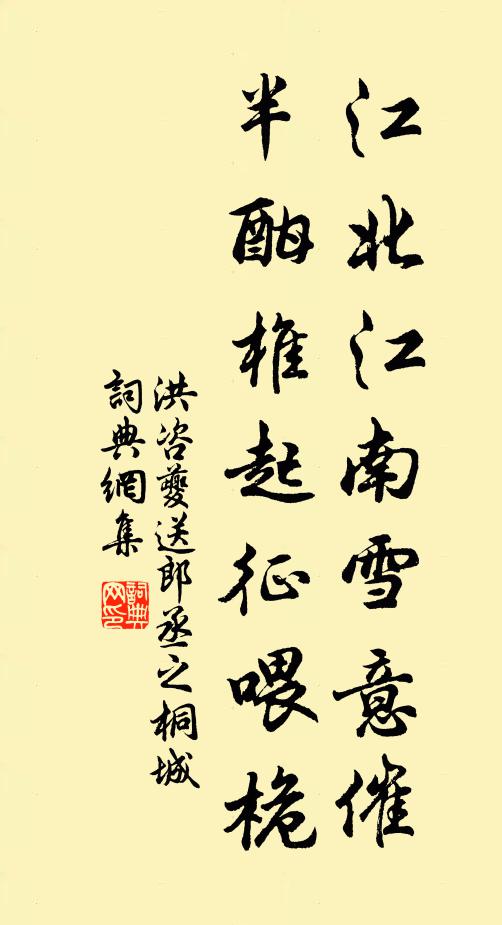 江北江南雪意催
半酣椎起征喂桅
洪咨夔送郎丞之桐城
詞典網集
詞典网印